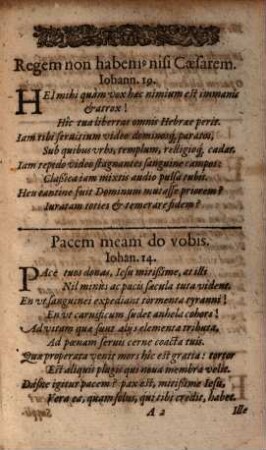 Regem non habem⁹ nisi Cæsarem.
Iohann. 19.
HEi mihi quàm vox hæc nimium est immanis
& atrox!
Hic tua libertas omnis Hebræe perit.
Iam tibi servitium video dominosq, paratos,
Sub quibus vrbs, templum, religioq, cadat.
Iam tepido video stagnantes sanguine campos:
Classica iam mixtis audio pulsa tubis.
Heu tantine fuit Dominum mutasse priorem?
Iuratam toties & temerare fidem?
Pacem meam do vobis.
Iohan. 14.
PAce tuos donas, Iesu mitissime, at illi
Nil minùs ac pacis sæcula tuta vident.
En vt sanguinei expediant tormenta tyranni!
En vt carnificum sudet anhela cohors!
Ad vitam quæ sunt alijs elementa tributa,
Ad pœnam servis cerne coacta tuis.
Quæ properata venit mors hîc est gratia: tortor
Est aliquis plagis qui noua membra velit.
Dasne igitur pacem? pax est, mitissime Iesu,
Vera ea, quam solus, qui tibi credit, habet.
A 2 Ille